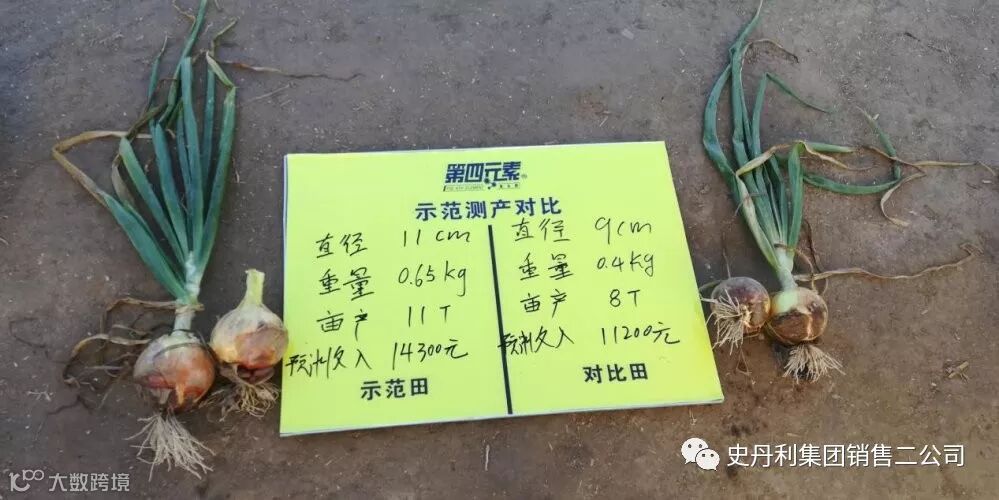 第四元素®
示范测产对比
直径 11cm
重量 0.65kg
亩产 11T
预测收入 14300元
示范田
直径 9cm
重量 0.4kg
亩产 8T
预测收入 11200元
对比田
史丹利集团销售二公司
大数跨境